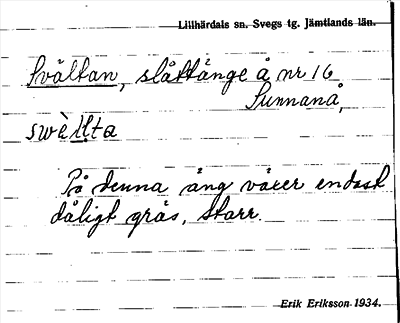 Lillhärdals sn. Svegs tg. Jämtlands län.
Svältan, slåttänge å nr 16
Sunnanå,
swèḷḷta
På denna äng växer endast
dåligt gräs, starr.
Erik Eriksson 1934.